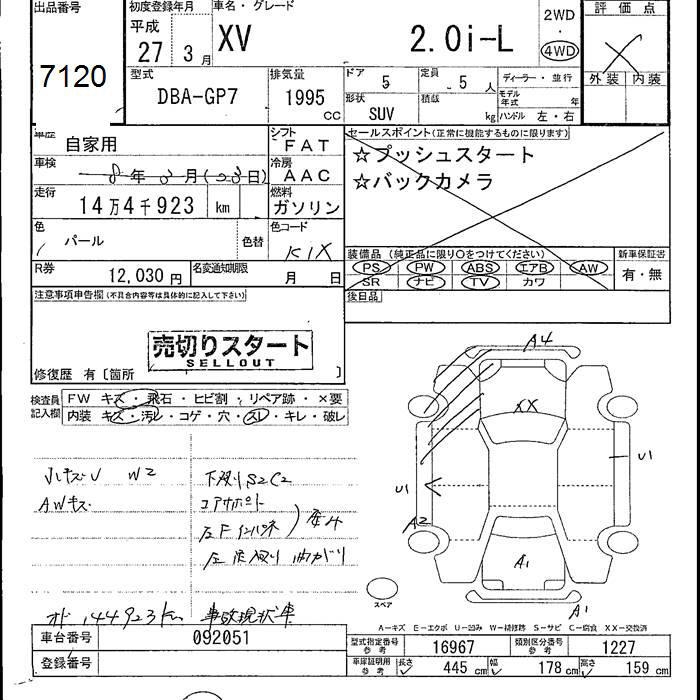 出品番号
7120
初度登録年月
平成
27 3月
車名・グレード
XV 2.0i-L
2WD
・
4WD
評価点
X
外装 内装
型式
DBA-GP7
排気量
1995
CC
ドア
5
定員
5人
形状
SUV
積載
kg
ディーラー・並行
モデル年式 年
ハンドル 左・右
車歴
自家用
シフト
FAT
車検
8年3月(23日)
冷房
AAC
走行
14万4千923 km
燃料
ガソリン
色
パール
色替
色コード
K1X
R券
12,030円
名変通知期限
月 日
セールスポイント(正常に機能するものに限ります)
☆プッシュスタート
☆バックカメラ
装備品(純正品に限り○をつけてください)
PS PW ABS エアB AW
SR ナビ TV カワ
新車保証書
有・無
後日品
注意事項申告欄(不具合内容等は具体的に記入して下さい)
売切りスタート
SELLOUT
修復歴 有〔箇所 〕
検査員記入欄
FW キズ・飛石・ヒビ割・リペア跡・×要
内装 キズ・汚レ・コゲ・穴・スレ・キレ・破レ
小キズU W2
AWキズ
下廻りS2C2
コアサポート
左Fインパネ
事故現状車
オド 144923km
A4
XX
U1
U1
A2
A1
A1
スペア
A-キズ E-エクボ U-凹み W-補修跡 S-サビ C-腐食 XX-交換済
車台番号
092051
登録番号
型式指定番号
参考
16967
類別区分番号
参考
1227
車庫証明用
参考
長さ 445 cm
幅 178 cm
高さ 159 cm